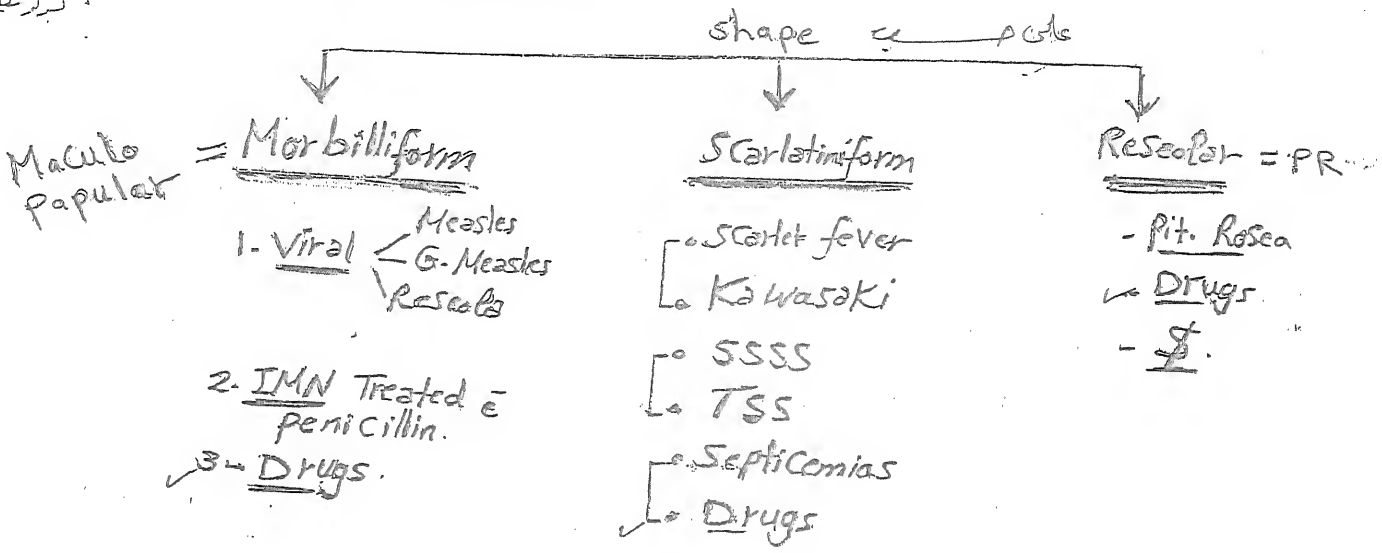 shape
Maculo papular = Morbilliform
1- Viral
Measles
G. Measles
Roseola
2- IMN Treated c̄
penicillin.
3- Drugs.
Scarlatiniform
Scarlet fever
Kawasaki
SSSS
TSS
Septicemias
Drugs
Roseolar = PR
- Pit. Rosea
Drugs
- $.